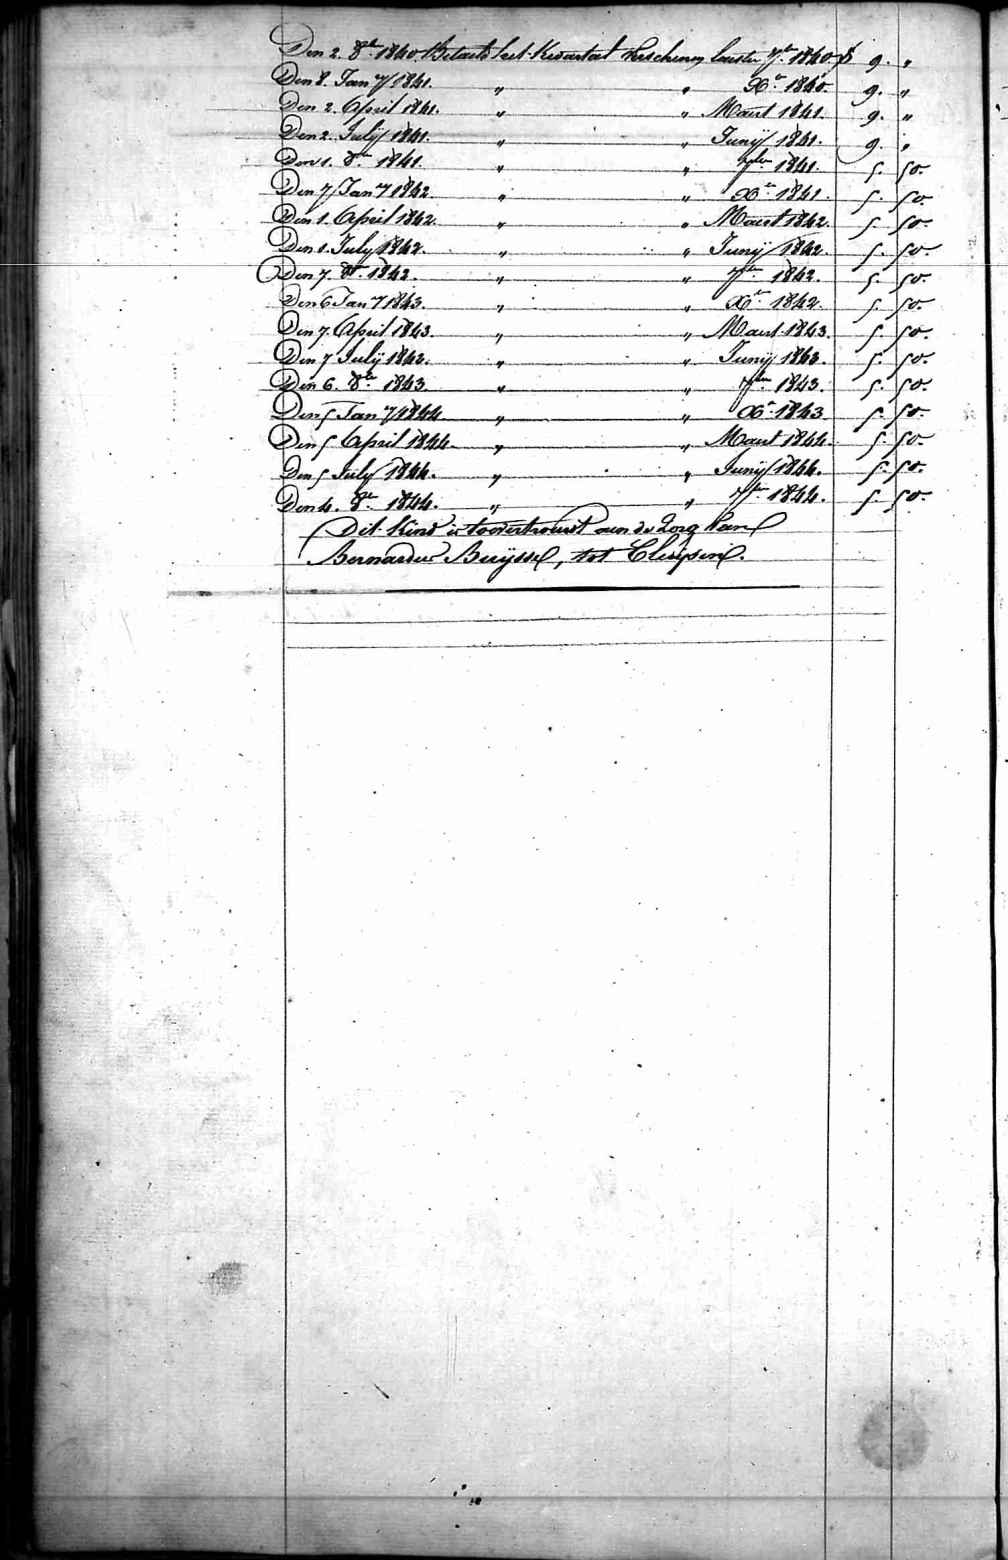 Den 2. 8br 1840 Betaald het Kwartaal verschenen laasten 7br 1840 f 9. "
Den 8. Jany 1841. " " Xbr 1840. 9. "
Den 2. April 1841. " " Maart 1841. 9. "
Den 2. July 1841. " " Junij 1841. 9. "
Den 1. 8br 1841. " " 7ber 1841. 5. 50.
Den 7 Jany 1842 " " Xbr 1841. 5. 50
Den 1. April 1842. " " Maart 1842. 5. 50.
Den 1. July 1842. " " Junij 1842 5. 50.
Den 7. 8br 1842. " " 7br 1842. 5. 50.
Den 6 Jany 1843. " " Xbr 1842. 5. 50.
Den 7. April 1843. " " Maart 1843. 5. 50.
Den 7 July 1843. " " Junij 1843. 5. 50.
Den 6. 8br 1843 " " 7ber 1843. 5. 50.
Den 5 Jany 1844 " " Xbr 1843 5. 50.
Den 5 April 1844. " " Maart 1844. 5. 50
Den 5 July 1844. " " Junij 1844. 5. 50.
Den 4. 8br 1844. " " 7br 1844. 5. 50.
Dit kind is toevertrouwt aen de Zorg van
Bernardus Buijsse, tot